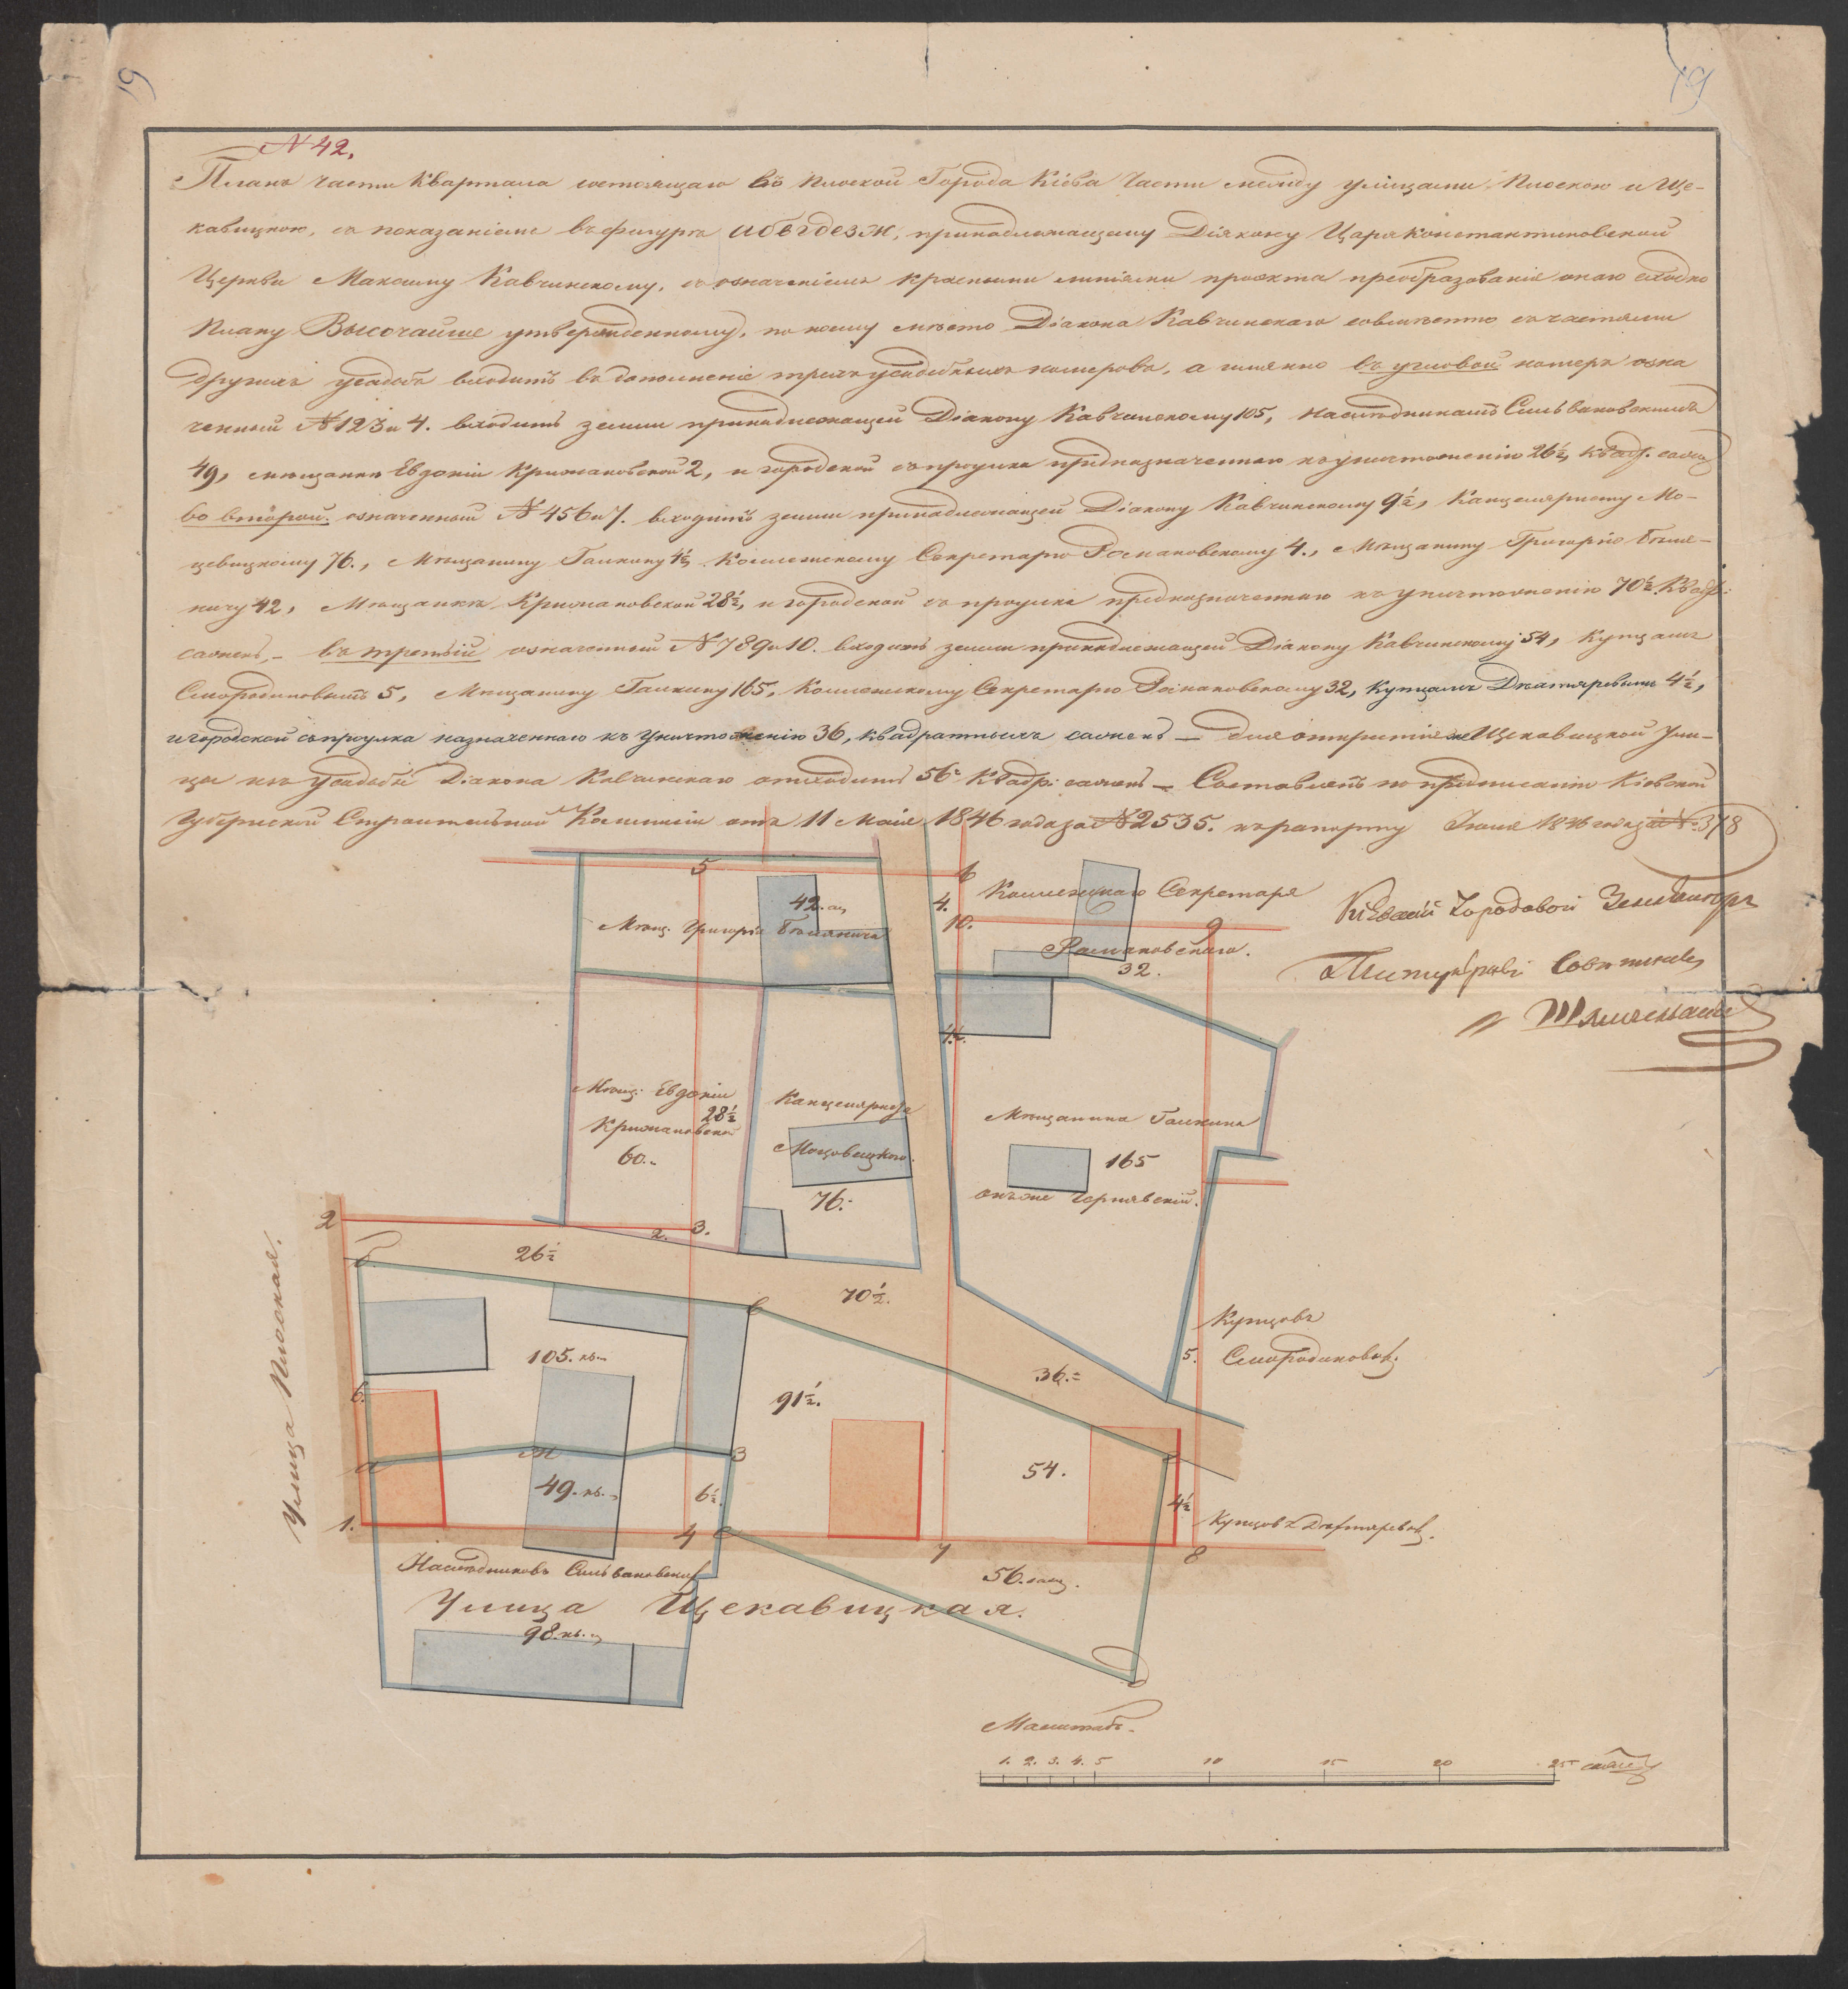 19
19
N 42.
Планъ части Квартала состоящаго въ Плоской Города Кіева Части между улицами Плоскою и Ще-
кавицкою, съ показаніемъ въ фигурѣ абвгдезж, принадлежащему Діякону Царяконстантиновской
Церкви Максиму Кавчинскому, съ означеніемъ красными линіями проэкта преобразованія онаго сходно
Плану Высочайше утвержденному, по коему мѣсто Діакона Кавчинскаго совмѣстно съ частями
другихъ усадьбъ входитъ въ дополненіе трехъ усадебныхъ номеровъ, а именно въ угловой номеръ озна
ченный № 1 2 3 и 4. входитъ земли принадлежащей Діакону Кавчинскому 105, Наслѣдникамъ Сильвановскимъ
49, мѣщанкѣ Евдокіи Крижановской 2, и городской съ проулка предназначеннаго къ уничтоженію 26½, квадр. сажен
во второй. означенный № 4 5 6 и 7. входитъ земли принадлежащей Діакону Кавчинскому 9½, Канцеляристу Мо-
цевицкому 76., Мѣщанину Галкину 4½ Коллежскому Секретарю Романовскому 4., Мѣщанину Григорію
ничу 42, Мѣщанкѣ Крижановской 28½, и городской съ проулка предназначеннаго къ уничтоженію 70½. Квадр:
сажень, – въ третій означенный № 7 8 9 и 10. входитъ земли принадлежащей Діакону Кавчинскому 54, Купцамъ
Смородиновымъ 5, Мѣщанину Галкину 165, Коллежскому Секретарю Романовскому 32, Купцамъ Дехтяревымъ 4½,
и городской съ проулка назначеннаго къ уничтоженію 36, квадратныхъ сажень — Для открытія же Щекавицкой Ули-
цы изъ усадьбы Діакона Кавчинскаго отходитъ 56 Квадр: сажень — Составленъ по предписанію Кіевской
Губернской Строительной Коммисіи отъ 11 Маія 1846 года за № 2535. къ рапорту Іюня 1846 года за № 378
Кіевскій Городовой Землемѣръ
Титулярный Совѣтникъ
5
6
42. саж
4.
10.
9
Коллежскаго Секретаря
Романовскаго.
32.
Мѣщ. Григорія
4½.
Мѣщ: Евдокіи
28½
Крижановской
60.
Канцеляриста
Моцевицкаго.
76.
Мѣщанина Галкина
165
онъ же Чернявскій.
2
2.
3.
26½
б
в
70½.
Купцовъ
Смородиновых.
5.
36.
105. кв.
91½.
6.
а
ж
з
г
49. кв.
6½.
54.
4½
1.
4
е
7
8
Купцовъ Дехтяревых.
Наслѣдниковъ Сильвановских
56. саж.
Улица Щекавицкая.
98. кв.
д
Улица Плоская.
Масштабъ.
1. 2. 3. 4. 5 10 15 20 25 сажен